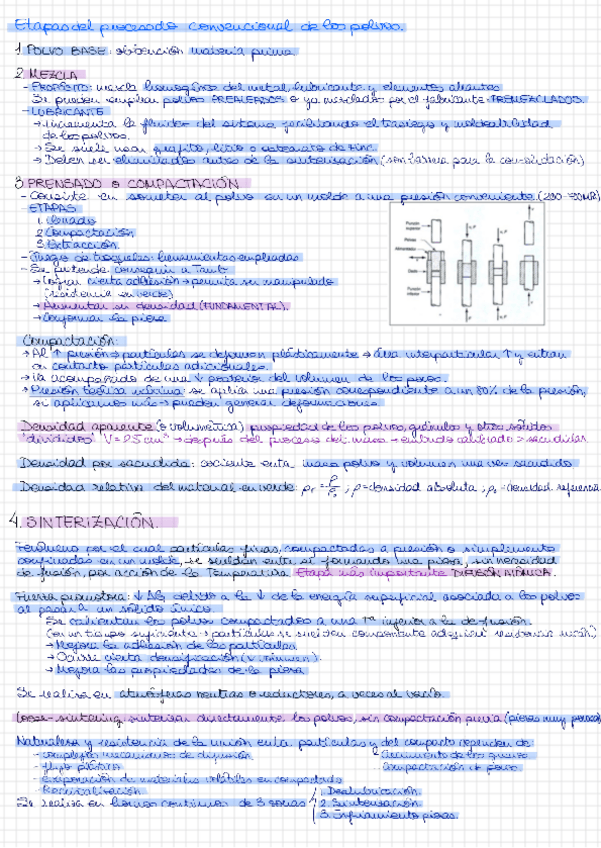 Etapas del procesado convencional de los polvos.
1. POLVO BASE: obtención materia prima
2. MEZCLA
- PROPÓSITO: mezcla homogénea del metal, lubricante y elementos aleantes
Se pueden emplear polvos PREALEADOS o ya mezclados por el fabricante PREMEZCLADOS.
- LUBRICANTE
→ Incrementa la fluidez del sistema facilitando el trasiego y moldeabilidad
de los polvos.
→ Se suele usar grafito, litio o estearato de zinc.
→ Deben ser eliminados antes de la sinterización (son barrera para la consolidación)
3. PRENSADO o COMPACTACIÓN
- Consiste en someter al polvo en un molde a una presión conveniente.
- ETAPAS
1. Llenado
2. Compactación
3. Extracción.
- Juego de troqueles: herramientas empleadas
- Se pretende conseguir
→ Lograr cierta adhesión → permita ser manipulado
(resistencia en verde)
→ Aumentar su densidad (FUNDAMENTAL).
→ Conformar la pieza
Punzón superior
Polvos
Alimentador
Dado
Punzón inferior
Compactación:
→ Al ↑ presión → partículas se deforman plásticamente → área interparticular ↑ y entran
en contacto partículas adicionales.
→ Va acompañado de una ↓ posterior del volumen de los poros.
→ Presión teórica máxima: se aplica una presión correspondiente a un 80% de la presión,
si aplicamos más → pueden generar deformaciones
Densidad aparente (o volumétrica) propiedad de los polvos, gránulos y otros sólidos
"divididos" V = 25 cm³ → después del proceso del → embudo calibrado → sin sacudir.
Densidad por sacudida: cociente entre masa polvo y volumen una vez sacudido
Densidad relativa del material en verde: ; ρ = densidad absoluta ; = densidad referencia
4. SINTERIZACIÓN.
Fenómeno por el cual partículas finas, compactadas a presión o simplemente
confinadas en un molde, se sueldan entre sí formando una pieza, sin necesidad
de fusión, por acción de la Temperatura. Etapa más importante DIFUSIÓN ATÓMICA.
Fuerza promotora: ↓ ΔG debido a la ↓ de la energía superficial asociada a los polvos
al pasar a un sólido único.
Se calientan los polvos compactados a una Tª inferior a la de fusión.
(en un tiempo suficiente → partículas se sueldan adquirir resistencia mecán.)
→ Mejora la adhesión de las partículas.
→ Ocurre cierta densificación (↓ volumen).
→ Mejora las propiedades de la pieza
Se realiza en atmósferas neutras o reductores, a veces al vacío.
Loose-sintering, sinterizar directamente los polvos, sin compactación previa (piezas muy porosas)
Naturaleza y resistencia de la unión entre partículas y del compacto dependen de
- complejos mecanismos de difusión
- flujo plástico
- Evaporación de materiales volátiles en compactado
- Recristalización
- Crecimiento de los granos
- Compactación de poros
Se realiza en hornos continuos de 3 zonas
1. Deslubricación
2. Sinterización
3. Enfriamiento piezas.